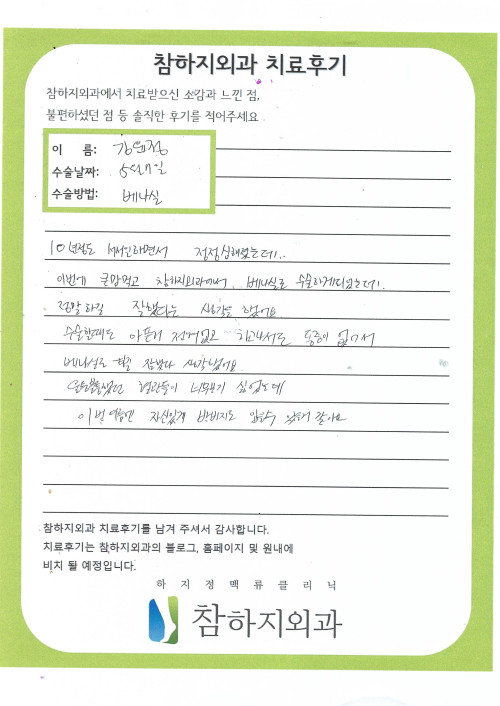 참하지외과 치료후기
참하지외과에서 치료받으신 소감과 느낀 점,
불편하셨던 점 등 솔직한 후기를 적어주세요
이 름: 김연정
수술날짜: 5월7일
수술방법: 베나실
10년정도 서서일하면서 점점심해졌는데..
이번에 큰맘먹고 참하지외과에서 베나실로 수술하게되었는데..
정말하길 잘했다는 생각을 했어요
수술할때도 아픈거 전혀없고 하고나서도 통증이 없어서
베나실로 하길 잘했다 생각했어요
울퉁불퉁했던 혈관들이 너무보기 싫었는데
이번 여름엔 자신있게 반바지도 입을수 있을거 같아요
참하지외과 치료후기를 남겨 주셔서 감사합니다.
치료후기는 참하지외과의 블로그, 홈페이지 및 원내에
비치 될 예정입니다.
하지정맥류클리닉
참하지외과